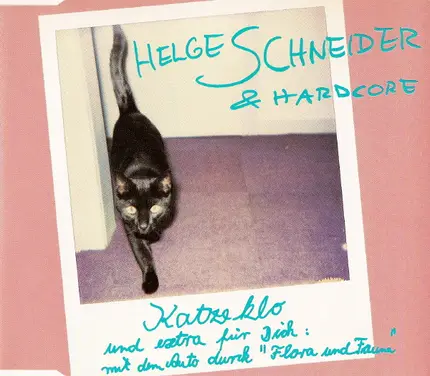 HELGE SCHNEIDER
& HARDCORE
Katzeklo
und extra für Dich:
mit dem Auto durch "Flora und Fauna"